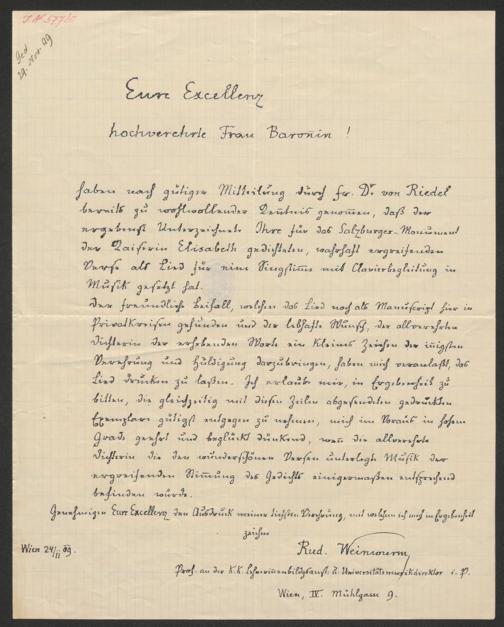 Eure Excellenz
hochverehrte Frau Baronin!
haben nach gütiger Mitteilung durch Fr. Dr. von Riedel
bereits zu wohlwollender Kenntnis genom̅en, daß der
ergebenst Unterzeichnete Ihre für das Salzburger-Monument
der Kaiserin Elisabeth gedichteten, wahrhaft ergreifenden
Verse als Lied für eine Singstim̅e mit Clavierbegleitung in
Musik gesetzt hat.
Der freundliche Beifall, welchen das Lied noch als Manuscript hier in
Privatkreisen gefunden und der lebhafte Wunsch, der allverehrten
Dichterin der erhebenden Worte ein kleines Zeichen der in̅igsten
Verehrung und Huldigung darzubringen, haben mich veranlaßt, das
Lied drucken zu laßen. Ich erlaube mir, in Ergebenheit zu
bitten, die gleichzeitig mit diesen Zeilen abgesendeten gedruckten
Exemplare gütigst entgegen zu nehmen, mich im Voraus in hohem
Grade geehrt und beglückt dünkend, wen̅ die allverehrte
Dichterin die den wunderschönen Versen unterlegte Musik der
ergreifenden Stim̅ung des Gedichts einigermaßen entsprechend
befinden würde.
Genehmigen Eure Excellenz den Ausdruck meiner tiefsten Verehrung, mit welcher ich mich in Ergebenheit
zeichne
Rud. Weinwurm
Wien 24/11 09.
Prof. an der K.K. Lehrerinnenbildungsanst. u. Universitätsmusikdirektor i. P.
Wien, IV. Mühlgasse 9.